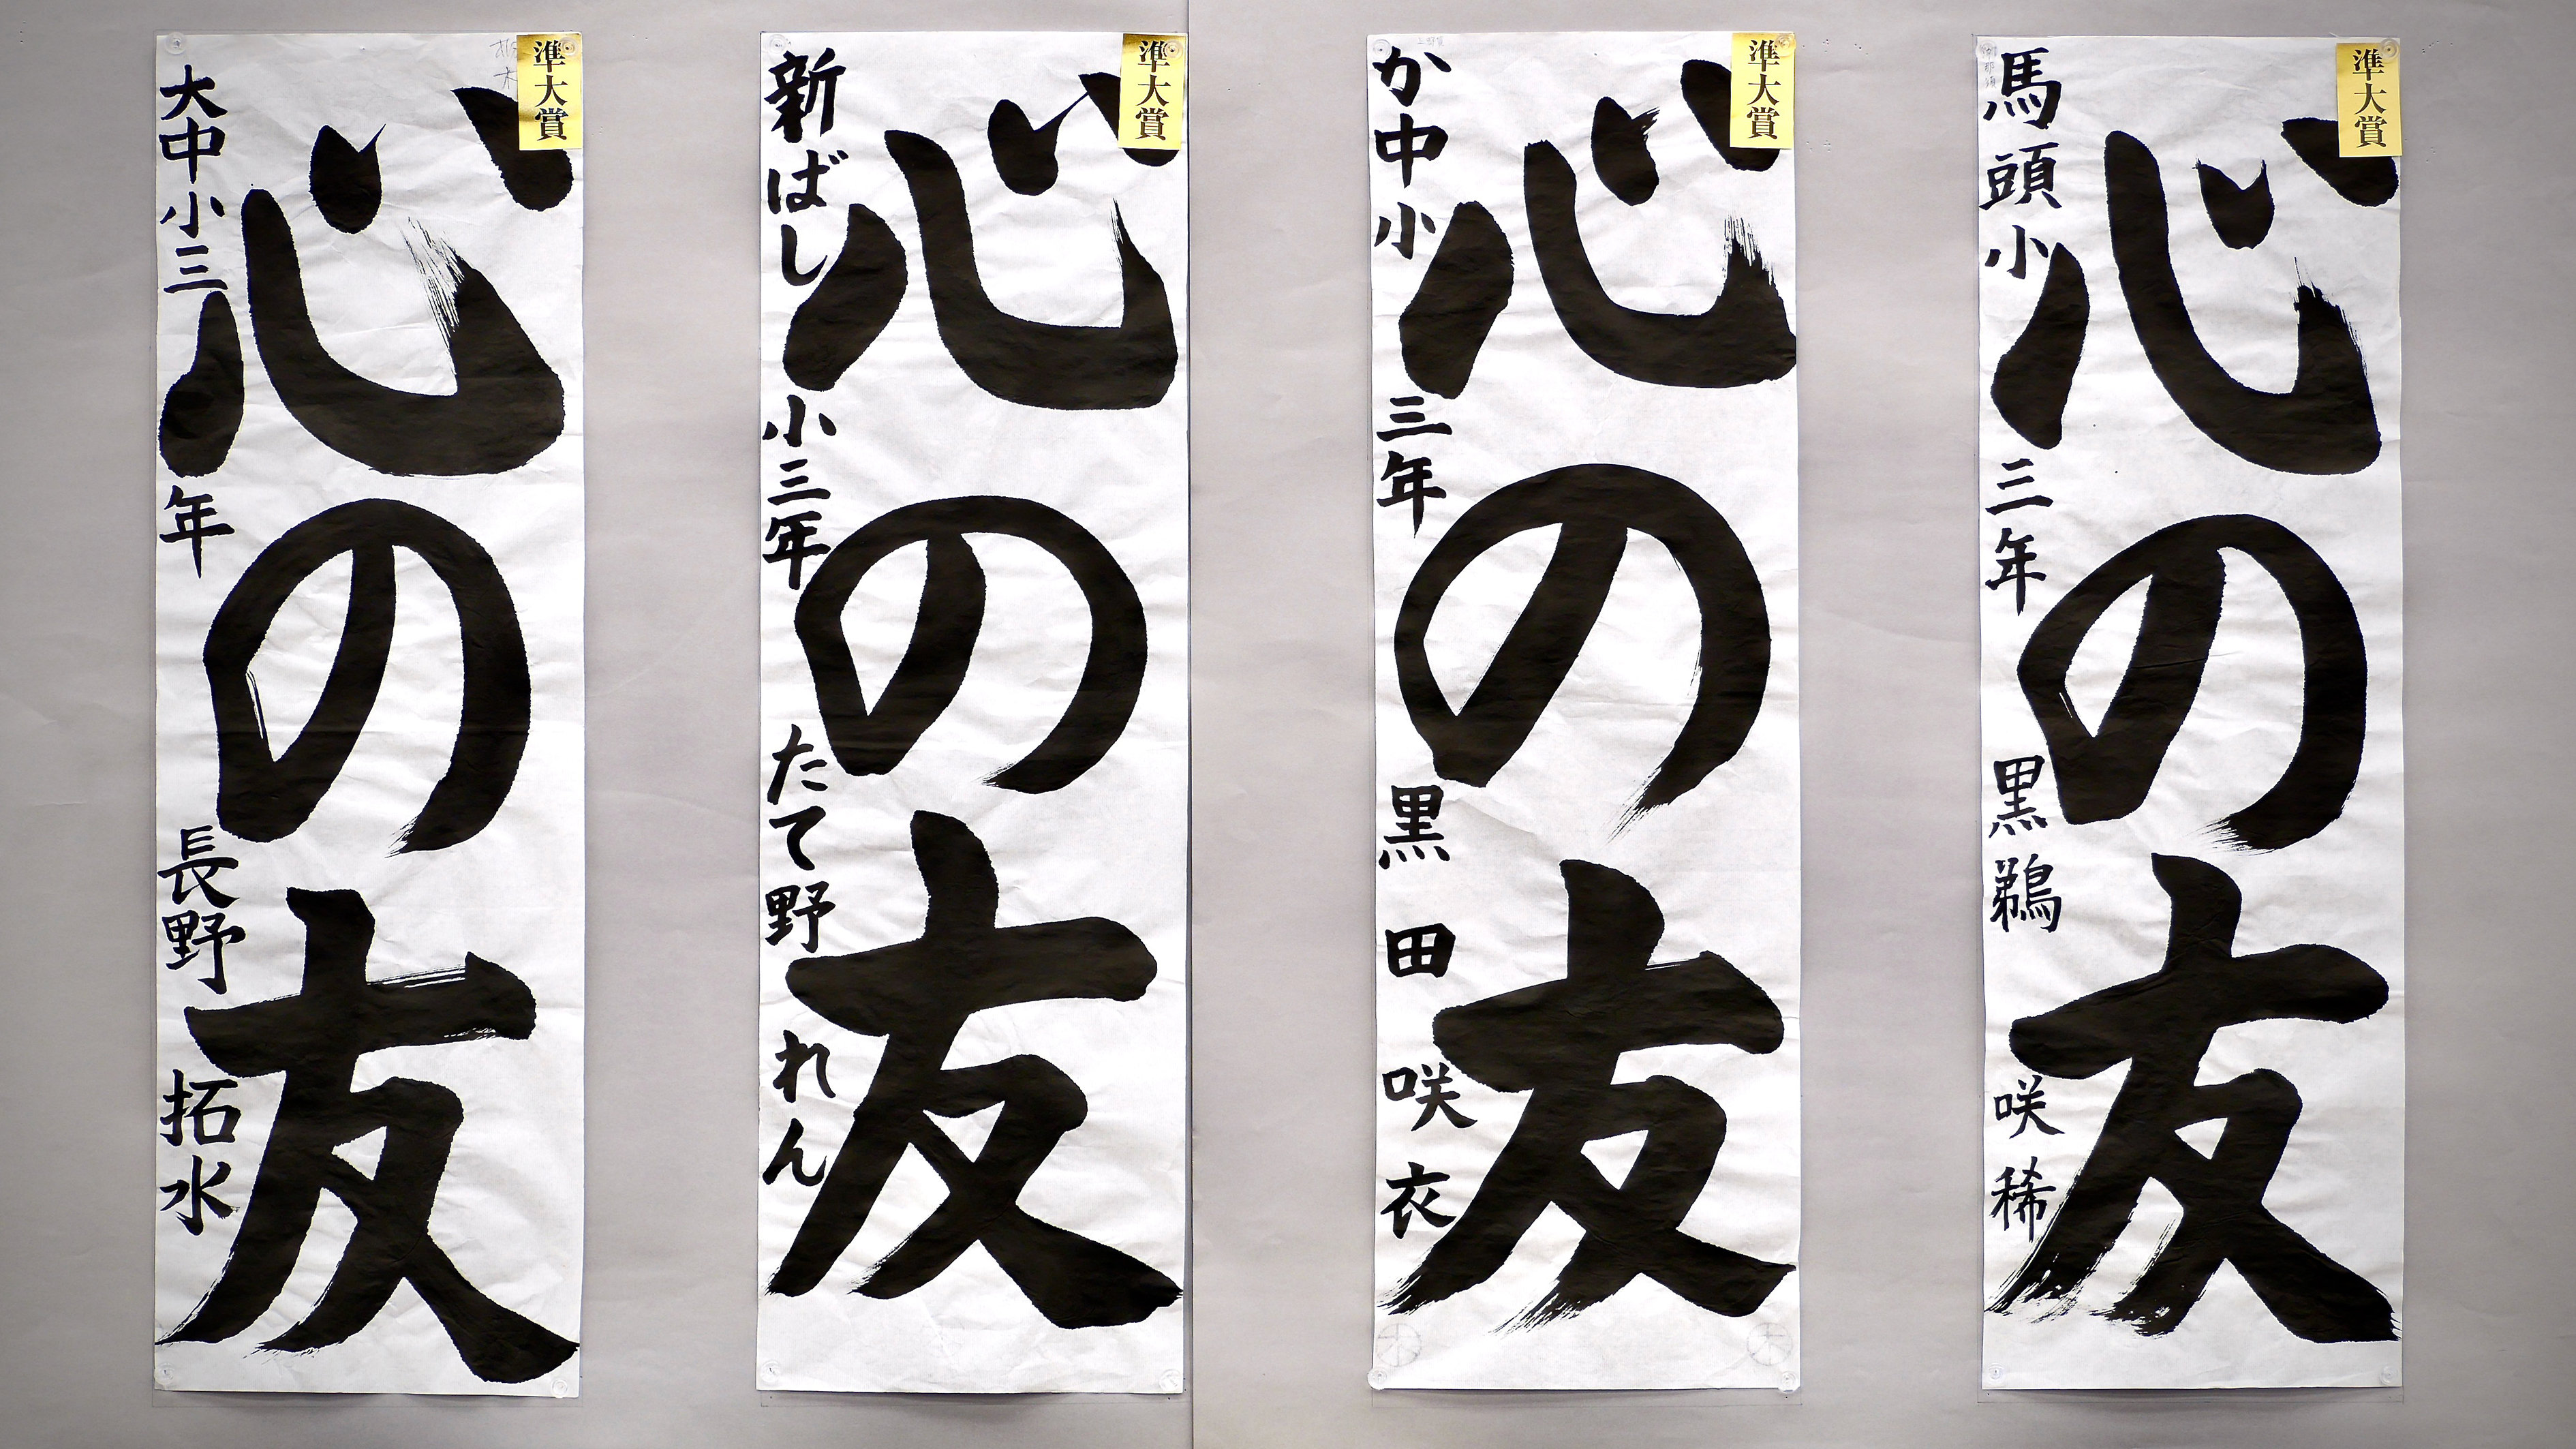 準大賞
心の友
大中小三年 長野拓水
準大賞
心の友
新ばし小三年 たて野れん
準大賞
心の友
か中小三年 黒田咲衣
準大賞
心の友
馬頭小三年 黒鵜咲稀